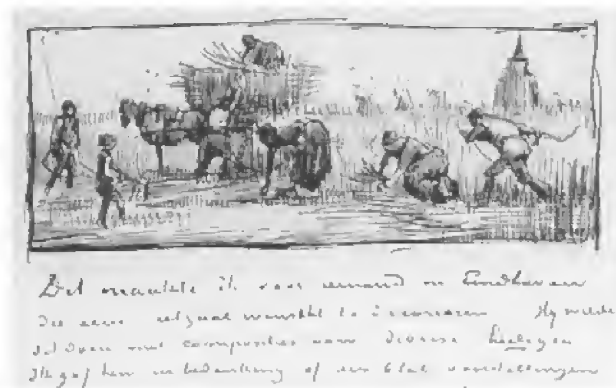 Dit maakte ik voor iemand in Eindhoven
die eene eetzaal wenscht te decoreeren Hy wilde
dit doen met composities van diverse heiligen
Ik gaf hem in bedenking of een 6tal voorstellingen